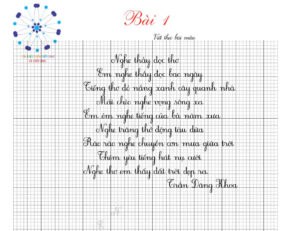 Bài 1
Nghe thầy đọc thơ
Em nghe thầy đọc bao ngày
Tiếng thơ đỏ nắng xanh cây quanh nhà
Mái chèo nghe vọng sông xa
Êm êm nghe tiếng của bà năm xưa
Nghe trăng thở động tàu dừa
Rào rào nghe chuyển cơn mưa giữa trời
Thêm yêu tiếng hát nụ cười
Nghe thơ em thấy đất trời đẹp ra.
Trần Đăng Khoa